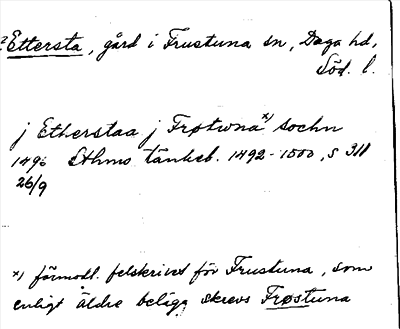 ?Ettersta, gård i Frustuna sn, Daga hd,
Söd. l.
j Etherstaa j Frøtwna x) sochn
1496 Sthms tänkeb. 1492-1500, s 311
26/9
x) förmodl. felskrivet för Frustuna, som
enligt äldre belägg skrevs Frøstuna